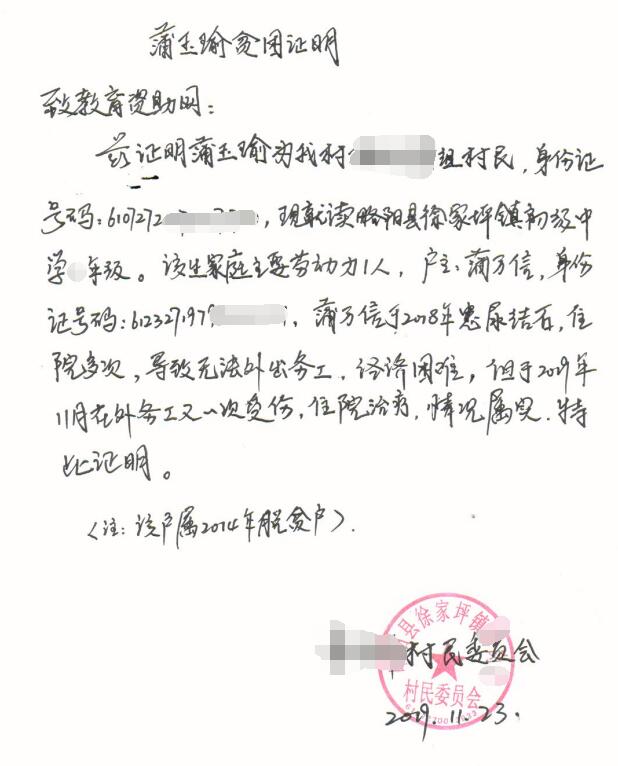 蒲玉瑜贫困证明
致教育资助网：
兹证明蒲玉瑜为我村 组村民，身份证
号码：6107272 ，现就读略阳县徐家坪镇初级中
学 年级。该生家庭主要劳动力1人，户主：蒲万信，身份
证号码：612327197 ，蒲万信于2018年患尿结石，住
院多次，导致无法外出务工，经济困难，但于2019年
11月在外务工又一次受伤，住院治疗，情况属实，特
此证明。
（注：该户属2014年脱贫户）.
县徐家坪镇
村民委员会
村民委员会
2019.11.23.